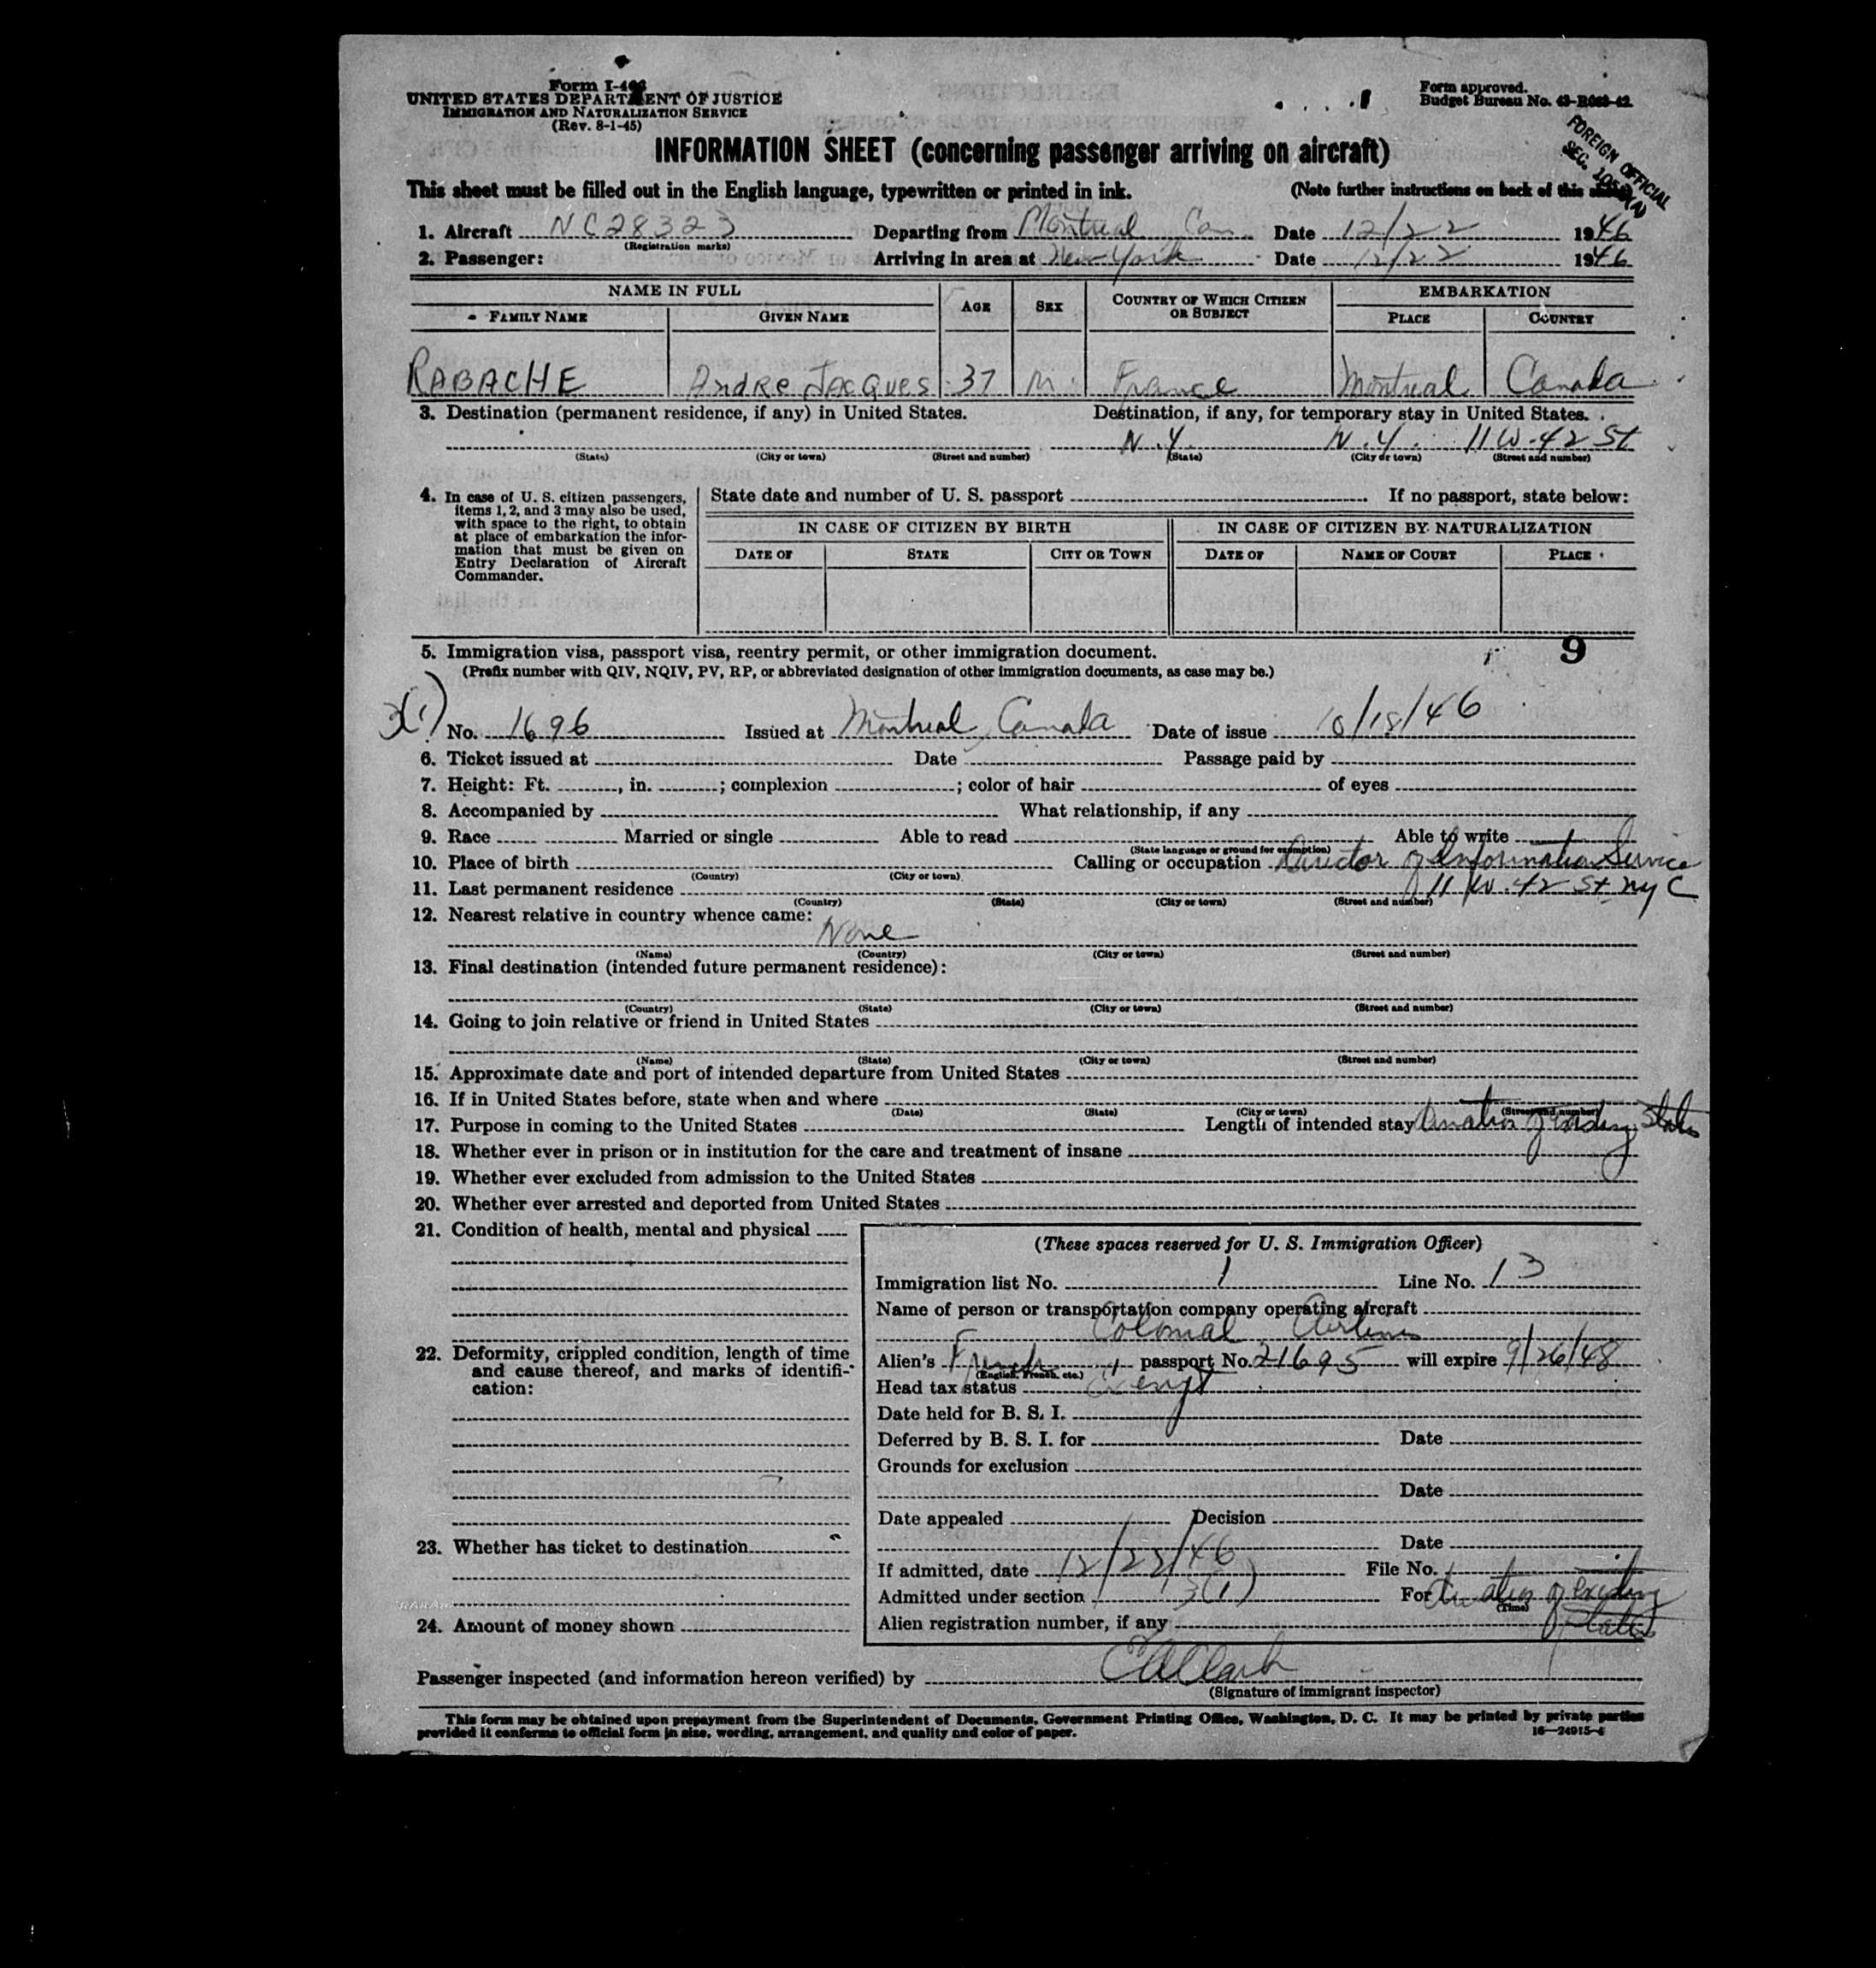 Form I-466
UNITED STATES DEPARTMENT OF JUSTICE
IMMIGRATION AND NATURALIZATION SERVICE
(Rev. 8-1-45)
Form approved.
Budget Bureau No.
FOREIGN OFFICIAL
SEC.
INFORMATION SHEET (concerning passenger arriving on aircraft)
This sheet must be filled out in the English language, typewritten or printed in ink. (Note further instructions on back of this
1. Aircraft NC28323 Departing from Montreal Can Date 12/22 1946
(Registration marks)
2. Passenger: Arriving in area at New York Date 12/22 1946
NAME IN FULL AGE SEX COUNTRY OF WHICH CITIZEN OR SUBJECT EMBARKATION
FAMILY NAME GIVEN NAME PLACE COUNTRY
RABACHE Andre Jacques 37 M. France Montreal Canada
3. Destination (permanent residence, if any) in United States. Destination, if any, for temporary stay in United States.
N.Y. N.Y. 11 W. 42 St
(State) (City or town) (Street and number) (State) (City or town) (Street and number)
4. In case of U. S. citizen passengers, items 1, 2, and 3 may also be used, with space to the right, to obtain at place of embarkation the information that must be given on Entry Declaration of Aircraft Commander.
State date and number of U. S. passport If no passport, state below:
IN CASE OF CITIZEN BY BIRTH IN CASE OF CITIZEN BY NATURALIZATION
DATE OF STATE CITY OR TOWN DATE OF NAME OF COURT PLACE
5. Immigration visa, passport visa, reentry permit, or other immigration document. 9
(Prefix number with QIV, NQIV, PV, RP, or abbreviated designation of other immigration documents, as case may be.)
3(1) No. 1696 Issued at Montreal, Canada Date of issue 10/18/46
6. Ticket issued at Date Passage paid by
7. Height: Ft. , in. ; complexion ; color of hair of eyes
8. Accompanied by What relationship, if any
9. Race Married or single Able to read Able to write
(State language or ground for exemption)
10. Place of birth Calling or occupation Director of Information Service
(Country) (City or town)
11. Last permanent residence 11 W. 42 St NYC
(Country) (State) (City or town) (Street and number)
12. Nearest relative in country whence came:
None
(Name) (Country) (City or town) (Street and number)
13. Final destination (intended future permanent residence):
(Country) (State) (City or town) (Street and number)
14. Going to join relative or friend in United States
(Name) (State) (City or town) (Street and number)
15. Approximate date and port of intended departure from United States
16. If in United States before, state when and where
(Date) (State) (City or town) (Street and number)
17. Purpose in coming to the United States Length of intended stay Duration of existing Status
18. Whether ever in prison or in institution for the care and treatment of insane
19. Whether ever excluded from admission to the United States
20. Whether ever arrested and deported from United States
21. Condition of health, mental and physical
22. Deformity, crippled condition, length of time and cause thereof, and marks of identification:
23. Whether has ticket to destination
24. Amount of money shown
(These spaces reserved for U. S. Immigration Officer)
Immigration list No. 1 Line No. 13
Name of person or transportation company operating aircraft
Colonial Airlines
Alien's French passport No. 21695 will expire 9/26/48
(English, French, etc.)
Head tax status exempt
Date held for B. S. I.
Deferred by B. S. I. for Date
Grounds for exclusion
Date
Date appealed Decision
Date
If admitted, date 12/22/46 File No.
Admitted under section 3(1) For Duration of existing Status
(Time)
Alien registration number, if any
Passenger inspected (and information hereon verified) by Clark
(Signature of immigrant inspector)
This form may be obtained upon prepayment from the Superintendent of Documents, Government Printing Office, Washington, D. C. It may be printed by private parties
provided it conforms to official form in size, wording, arrangement, and quality and color of paper. 16—24915-4